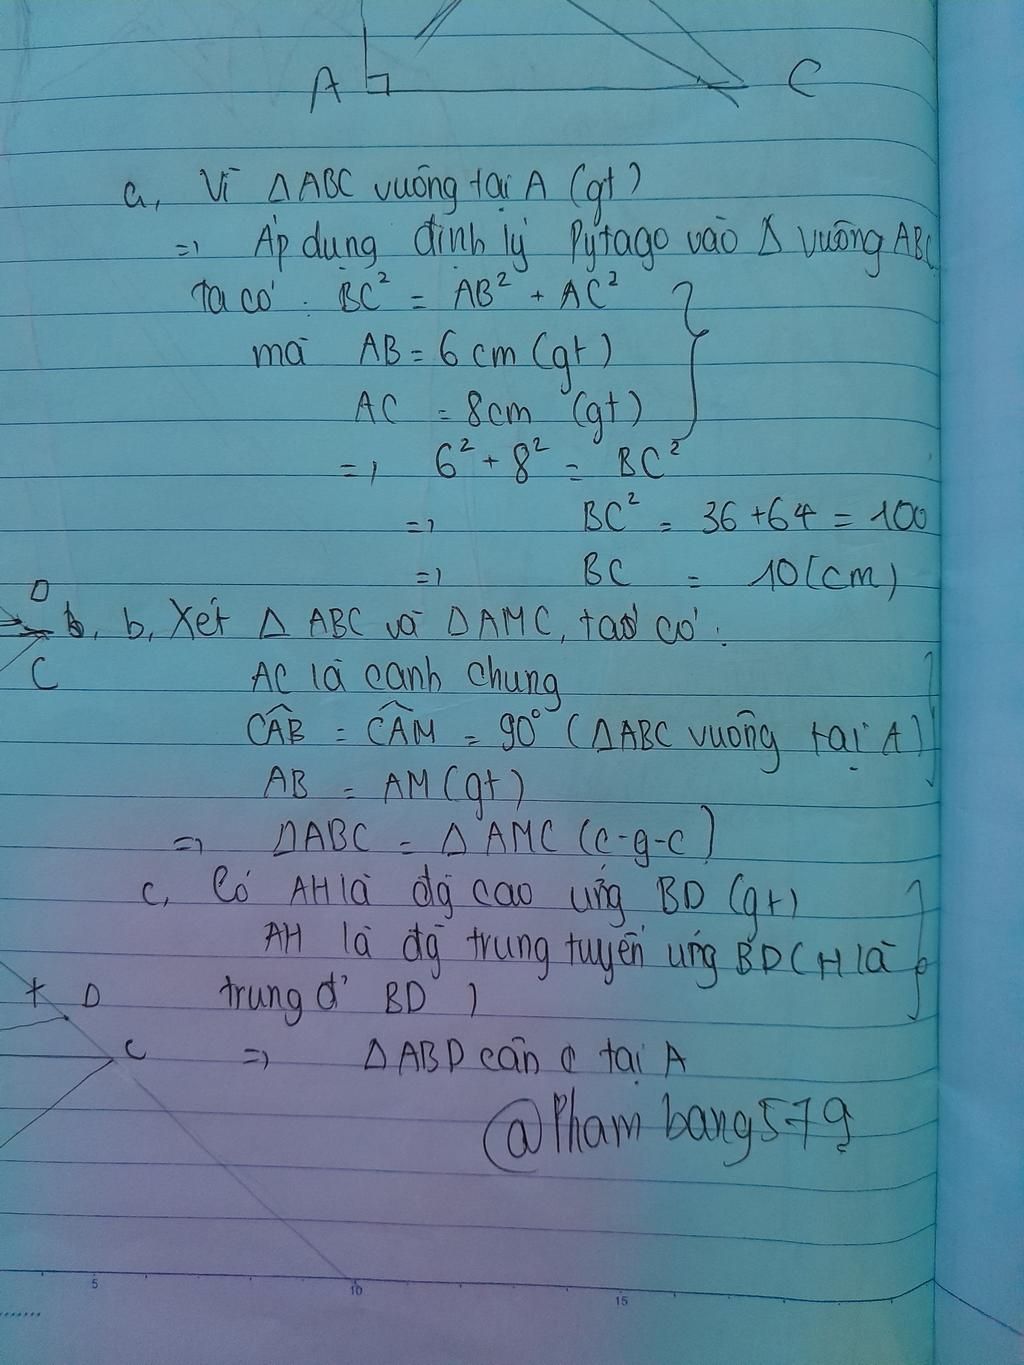 A C
a, Vì Δ ABC vuông tại A (gt)
=> Áp dụng định lý Pytago vào Δ vuông ABC
ta có : BC² = AB² + AC²
mà AB = 6 cm (gt)
AC = 8cm (gt)
=> 6² + 8² = BC²
=> BC² = 36 + 64 = 100
=> BC = 10 (cm)
D
b, Xét Δ ABC và Δ AMC, ta có :
C
AC là cạnh chung
CÂB = CÂM = 90° (ΔABC vuông tại A)
AB = AM (gt)
=> ΔABC = Δ AMC (c-g-c)
c, Có AH là đg cao ứng BD (gt)
AH là đg trung tuyến ứng BD (H là
trung đ' BD )
D
C
=> ΔABD cân tại A
@Phambang579
5 10 15